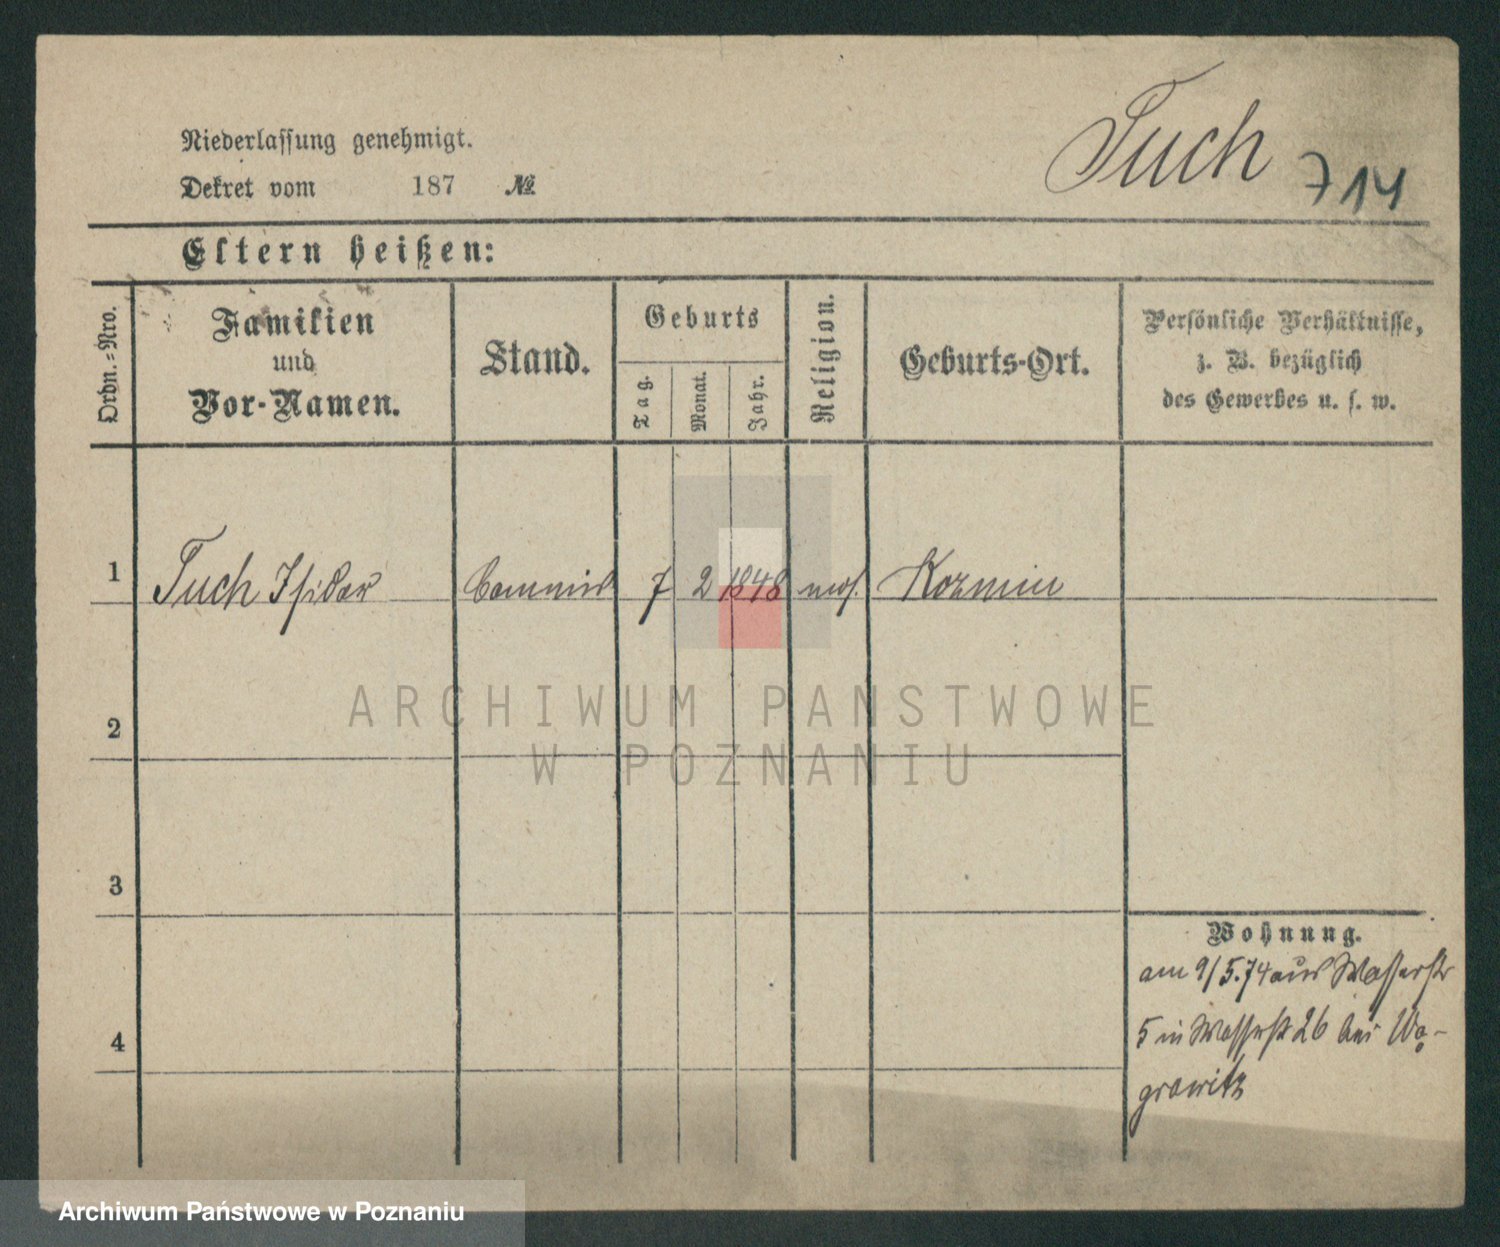 Tuch
714
Niederlassung genehmigt.
Dekret vom 187 №
Eltern heißen:
Ordn.-Nro.
Familien
und
Vor-Namen.
Stand.
Geburts
Tag.
Monat.
Jahr.
Religion.
Geburts-Ort.
Persönliche Verhältnisse,
z. B. bezüglich
des Gewerbes u. s. w.
1 Tuch Isidor Commis 7 2 1848 mos. Kozmin
2
3
4
Wohnung.
am 9/5.74 aus Wasserstr
5 in Wasserstr 26 bei Wą-
growitz
ARCHIWUM PAŃSTWOWE
W POZNANIU
Archiwum Państwowe w Poznaniu